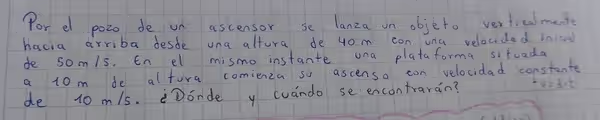 Por el pozo de un ascensor se lanza un objeto verticalmente
hacia arriba desde una altura de 40 m con una velocidad inicial
de 50 m/s. En el mismo instante una plataforma situada
a 10 m de altura comienza su ascenso con velocidad constante
de 10 m/s. ¿Dónde y cuándo se encontrarán?